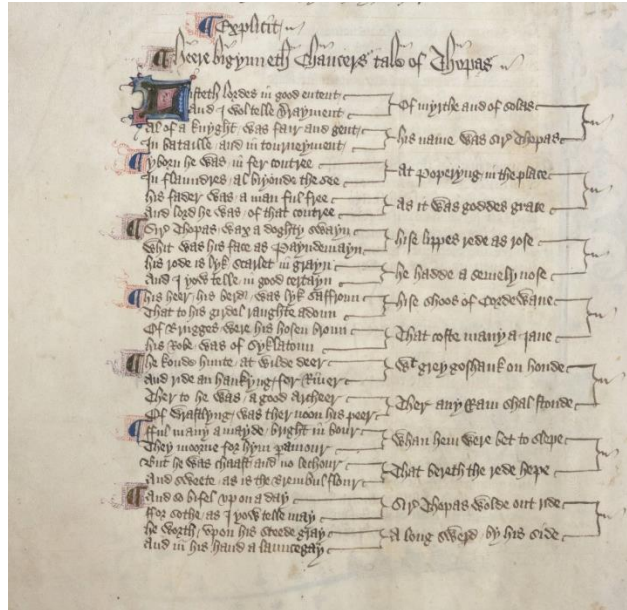 Explicit
Heere bigynneth Chaucers tale of Thopas
Listeth lordes in good entent
And I wol telle vrayment
Of myrthe and of solas
Al of a knyght was fair and gent
In bataille and in tourneyment
his name was sir Thopas
Yborn he was in fer contree
In fflaundres al biyonde the see
At Poperyng in the place
his fader was a man ful free
And lord he was of that contree
As it was goddes grace
Sir Thopas wax a doghty swayn
Whit was his face as Payndemayn
hise lippes rede as rose
his rode is lyk scarlet in grayn
And I yow telle in good certayn
he hadde a semely nose
his heer his berd was lyk saffroun
That to his girdel raughte adoun
hise shoos of Cordewane
Of Brugges were his hosen broun
his Robe was of Syklatoun
That coste many a jane
he koude hunte at wilde deer
And ride an haukyng for River
Wt grey goshauk on honde
Ther to he was a good Archeer
Of wrastlyng was ther noon his peer
Ther any Ram shal stonde
fful many a mayde bright in bour
They moorne for hym pamour
Whan hem were bet to slepe
But he was chaast and no lechour
And sweete as is the Brembul flour
That bereth the rede hepe
And so bifel vpon a day
ffor sothe as I yow telle may
Sir Thopas wolde out ride
he worth vpon his steede gray
And in his hand a launcegay
A long swerd by his side